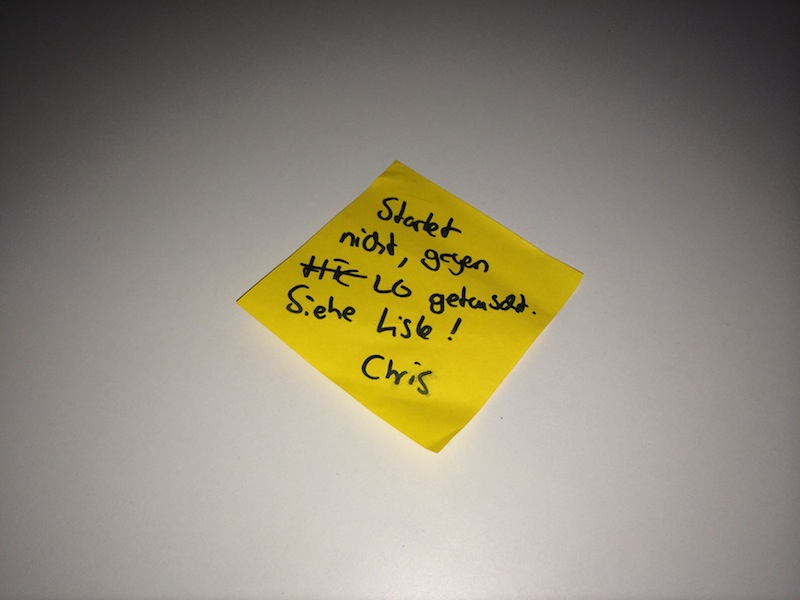 Startet
nicht, gegen
LG getauscht.
Siehe Liste!
Chris